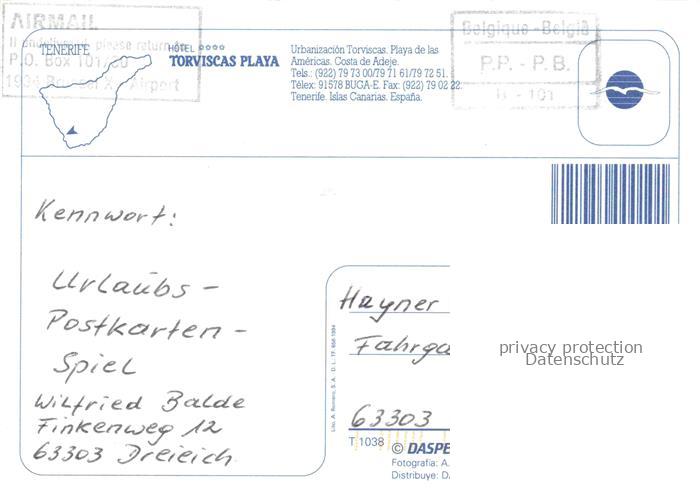 AIRMAIL
If undeliverable please return to
P.O. Box 101/30
1934 Brussel X - Airport
TENERIFE
HOTEL
TORVISCAS PLAYA
Urbanización Torviscas. Playa de las
Américas. Costa de Adeje.
Tels.: (922) 79 73 00/79 71 61/79 72 51.
Télex: 91578 BUGA-E. Fax: (922) 79 02 22.
Tenerife. Islas Canarias. España.
Belgique - België
P.P. - P.B.
B - 101
Kennwort:
Urlaubs -
Postkarten -
Spiel
Wilfried Balde
Finkenweg 12
63303 Dreieich
Lito. A. Romero, S. A. D. L. TF. 658-1994
Hayner
Fahrga
63303
T 1038
© DASPE
Fotografía: A.
Distribuye: D
privacy protection
Datenschutz